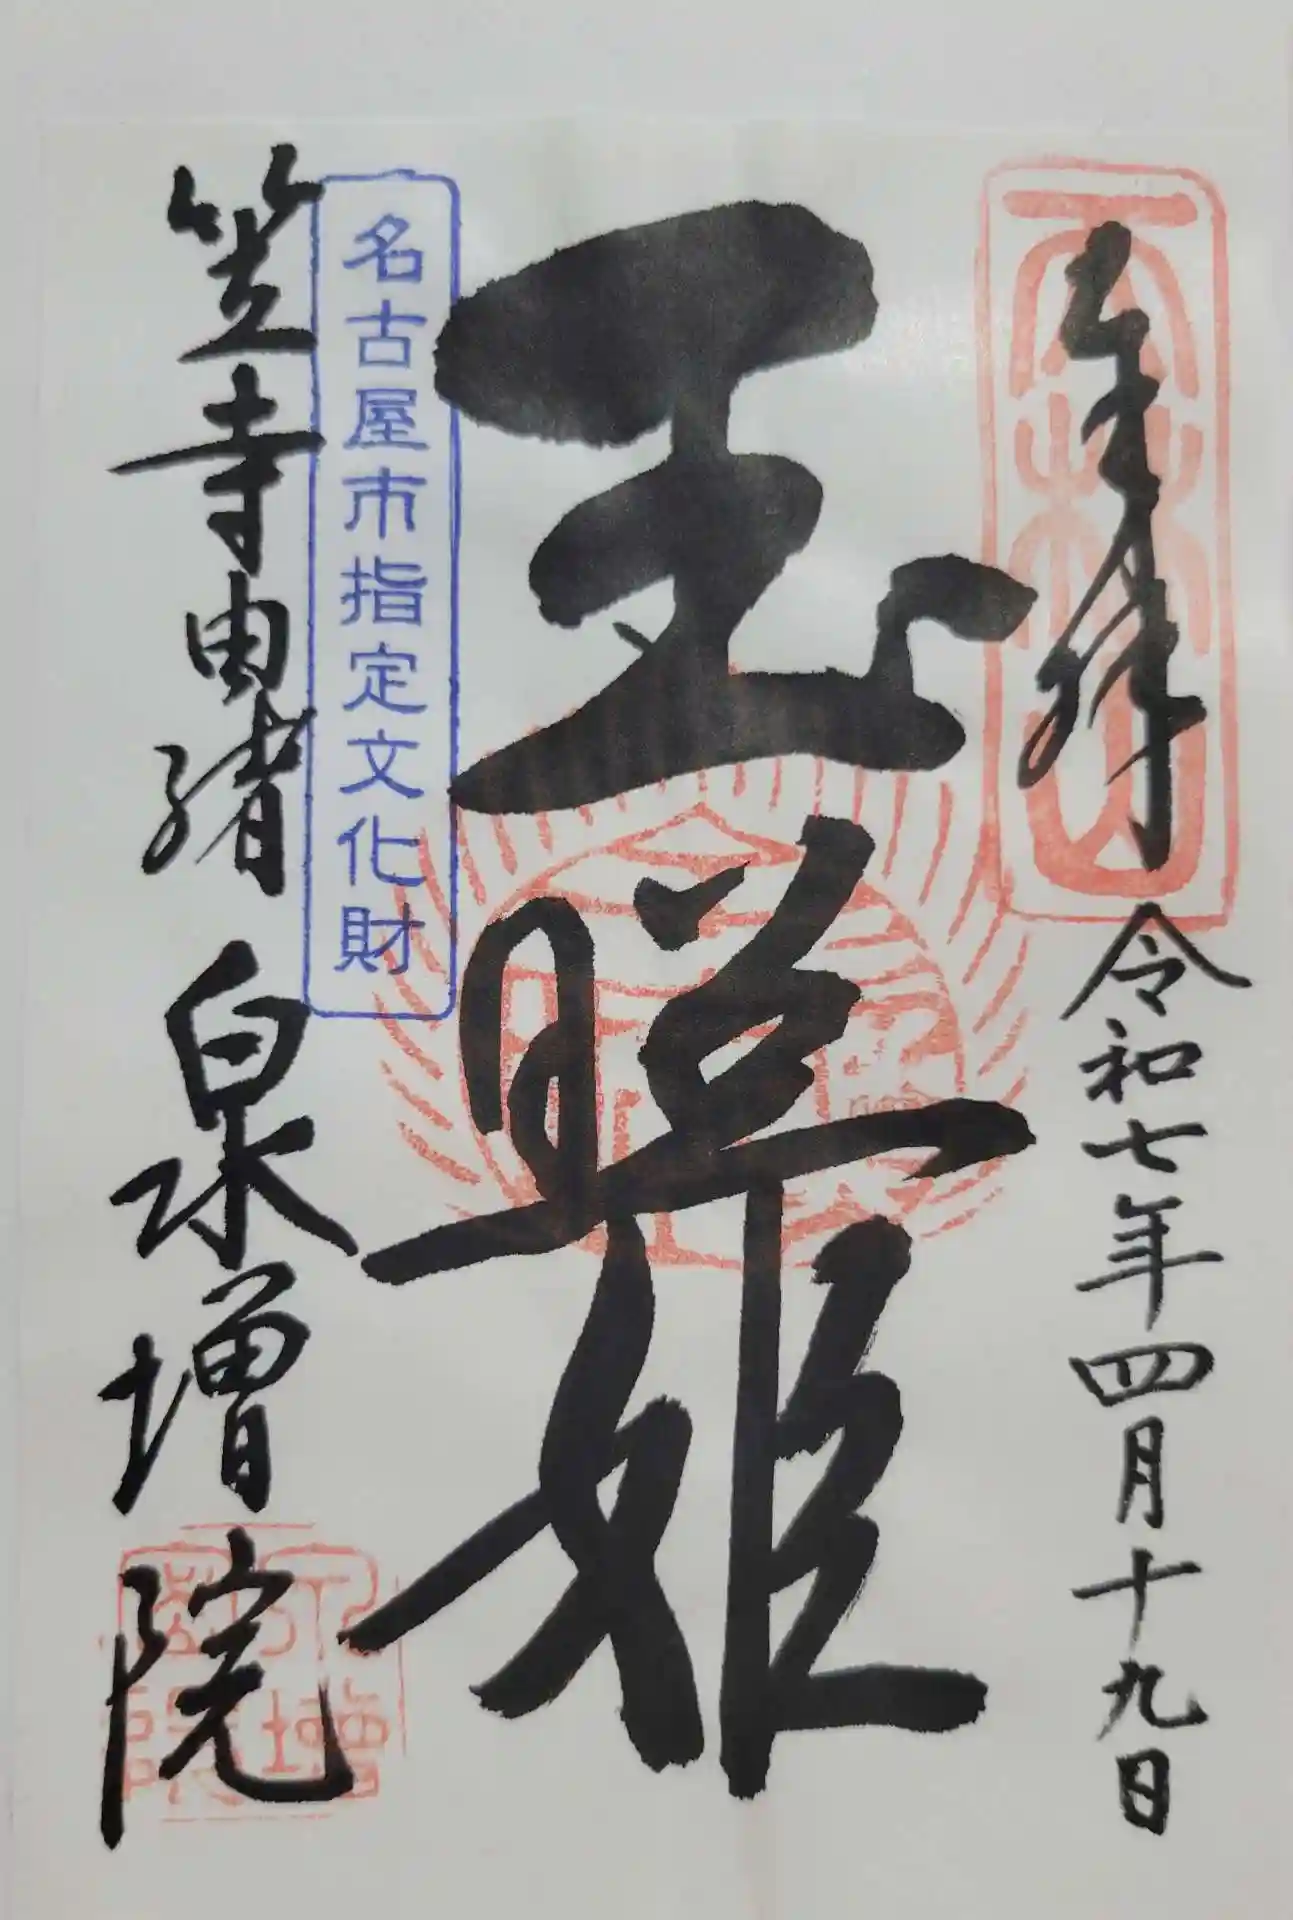 奉拝
令和七年四月十九日
玉照姫
名古屋市指定文化財
笠寺由緒 泉増院
天林山